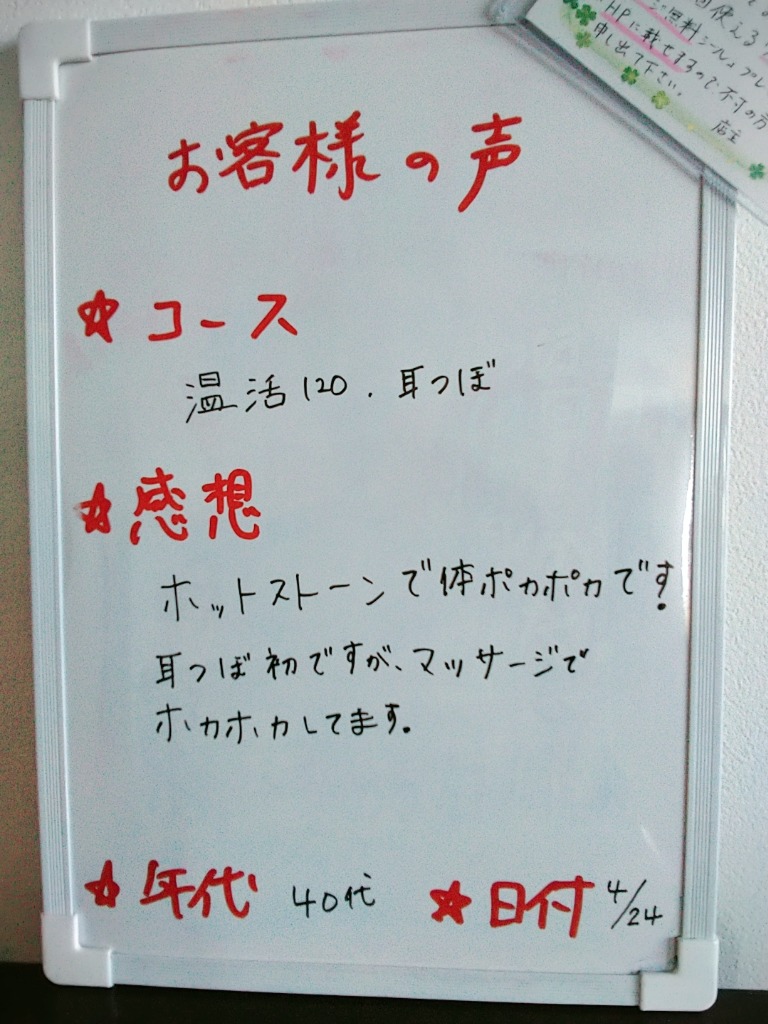 回使える
無料シール」プレ
HPに載せるので不可の方
申し出下さい。
店主
お客様の声
☆コース
温活120.耳つぼ
☆感想
ホットストーンで体ポカポカです!
耳つぼ初ですが、マッサージで
ホカホカしてます。
☆年代 40代 ☆日付 4/24